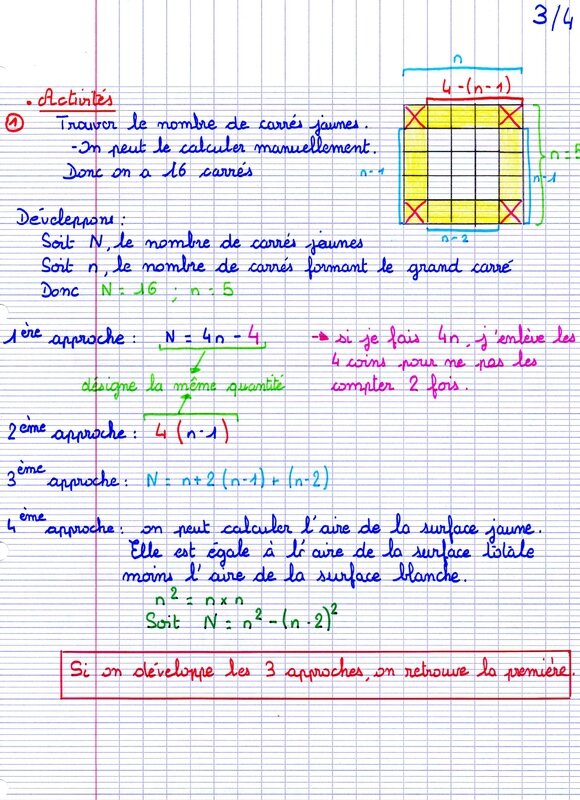 3/4
n
4-(n-1)
• Activités
① Trouver le nombre de carrés jaunes.
- On peut le calculer manuellement.
Donc on a 16 carrés
n-1
n-1
n=5
n-2
Développons :
Soit N, le nombre de carrés jaunes
Soit n, le nombre de carrés formant le grand carré
Donc N = 16 ; n = 5
1ère approche : N = 4n - 4 → si je fais 4n, j'enlève les
4 coins pour ne pas les
compter 2 fois.
désigne la même quantité
2ème approche : 4 (n-1)
3ème approche : N = n+2 (n-1) + (n-2)
4ème approche : on peut calculer l'aire de la surface jaune.
Elle est égale à l'aire de la surface totale
moins l'aire de la surface blanche.
n² = n × n
Soit N = n² - (n-2)²
Si on développe les 3 approches, on retrouve la première.